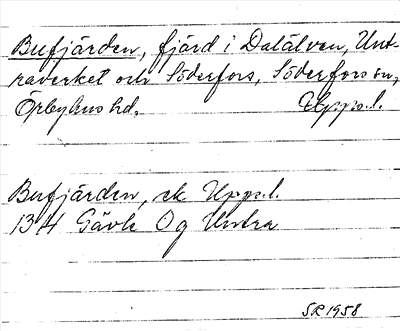 Bufjärden, fjärd i Dalälven, Unt-
raverket och Söderfors, Söderfors sn,
Örbyhus hd. Upps.l.
Bufjärden, ek Upps.l.
13 H Gävle Og Untra
SR 1958